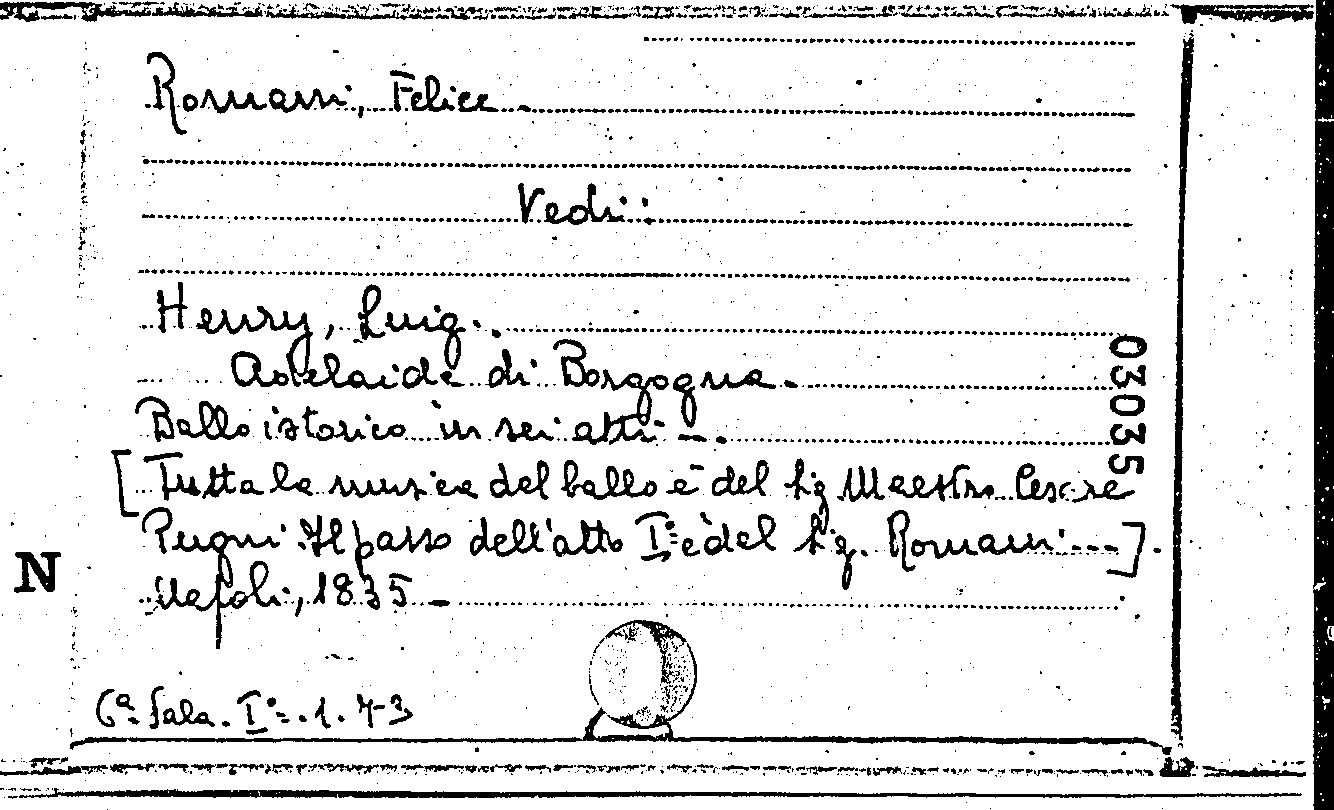 Romani, Felice.
Vedi:
Henry, Luigi.
Adelaide di Borgogna.
Ballo istorico in sei atti -.
[Tutta la musica del ballo è del Sig Maestro Cesare
Pugni. Il passo dell'atto I° è del Sig. Romani...].
Napoli, 1835 -
6ª Sala. I°. 1. 7-3
03035
N